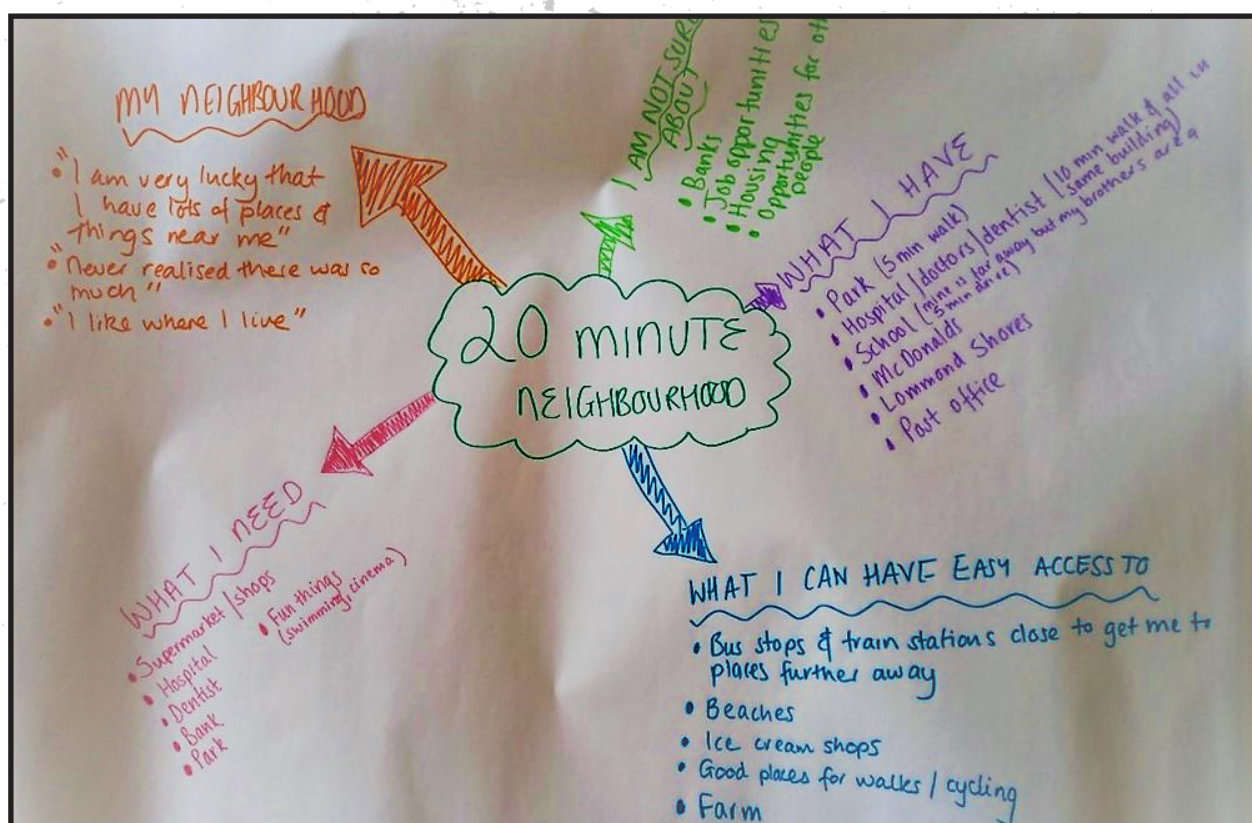 MY NEIGHBOURHOOD
• "I am very lucky that
I have lots of places &
things near me"
• "Never realised there was so
much"
• "I like where I live"
I AM NOT SURE
ABOUT
• Banks
• Job opportunities
• Housing
• Opportunities for
people
WHAT I HAVE
• Park (5 min walk)
• Hospital/doctors/dentist (10 min walk & all in
same building)
• School (mine is far away but my brothers are a
5 min drive)
• McDonalds
• Lommond Shores
• Post office
20 MINUTE
NEIGHBOURHOOD
WHAT I NEED
• Supermarket/shops
• Hospital
• Dentist
• Bank
• Park
• Fun things
(swimming, cinema)
WHAT I CAN HAVE EASY ACCESS TO
• Bus stops & train stations close to get me to
places further away
• Beaches
• Ice cream shops
• Good places for walks / cycling
• Farm